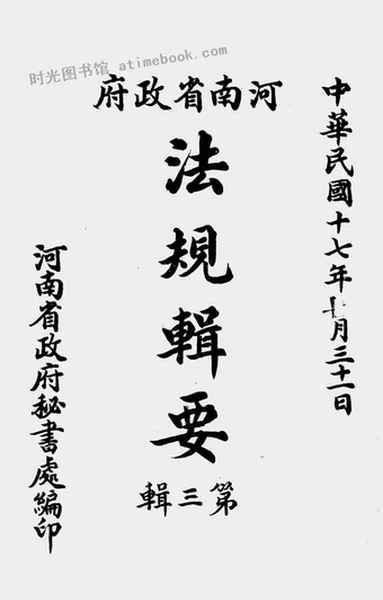 时光图书馆 atimebook.com
中華民國十七年十月三十一日
河南省政府
法規輯要
第三輯
河南省政府秘書處編印